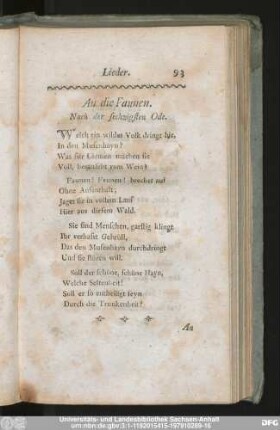 Lieder. 93
An die Faunen.
Nach der sechzigsten Ode.
Welch ein wildes Volk dringt hie,
In den Musenhayn?
Was für Lärmen machen sie
Voll, berauscht vom Wein?
Faunen! Faunen! brechet auf
Ohne Aufenthalt;
Jaget sie in vollem Lauf
Hier aus diesem Wald.
Sie sind Menschen, garstig klingt
Ihr verhaßt Gebrüll,
Das den Musenhayn durchdringt
Und sie stören will.
Soll der schöne, schöne Hayn,
Welche Seltenheit!
Soll er so entheiligt seyn
Durch die Trunkenheit?
An
Universitäts- und Landesbibliothek Sachsen-Anhalt
urn:nbn:de:gbv:3:1-1192015415-197810269-16